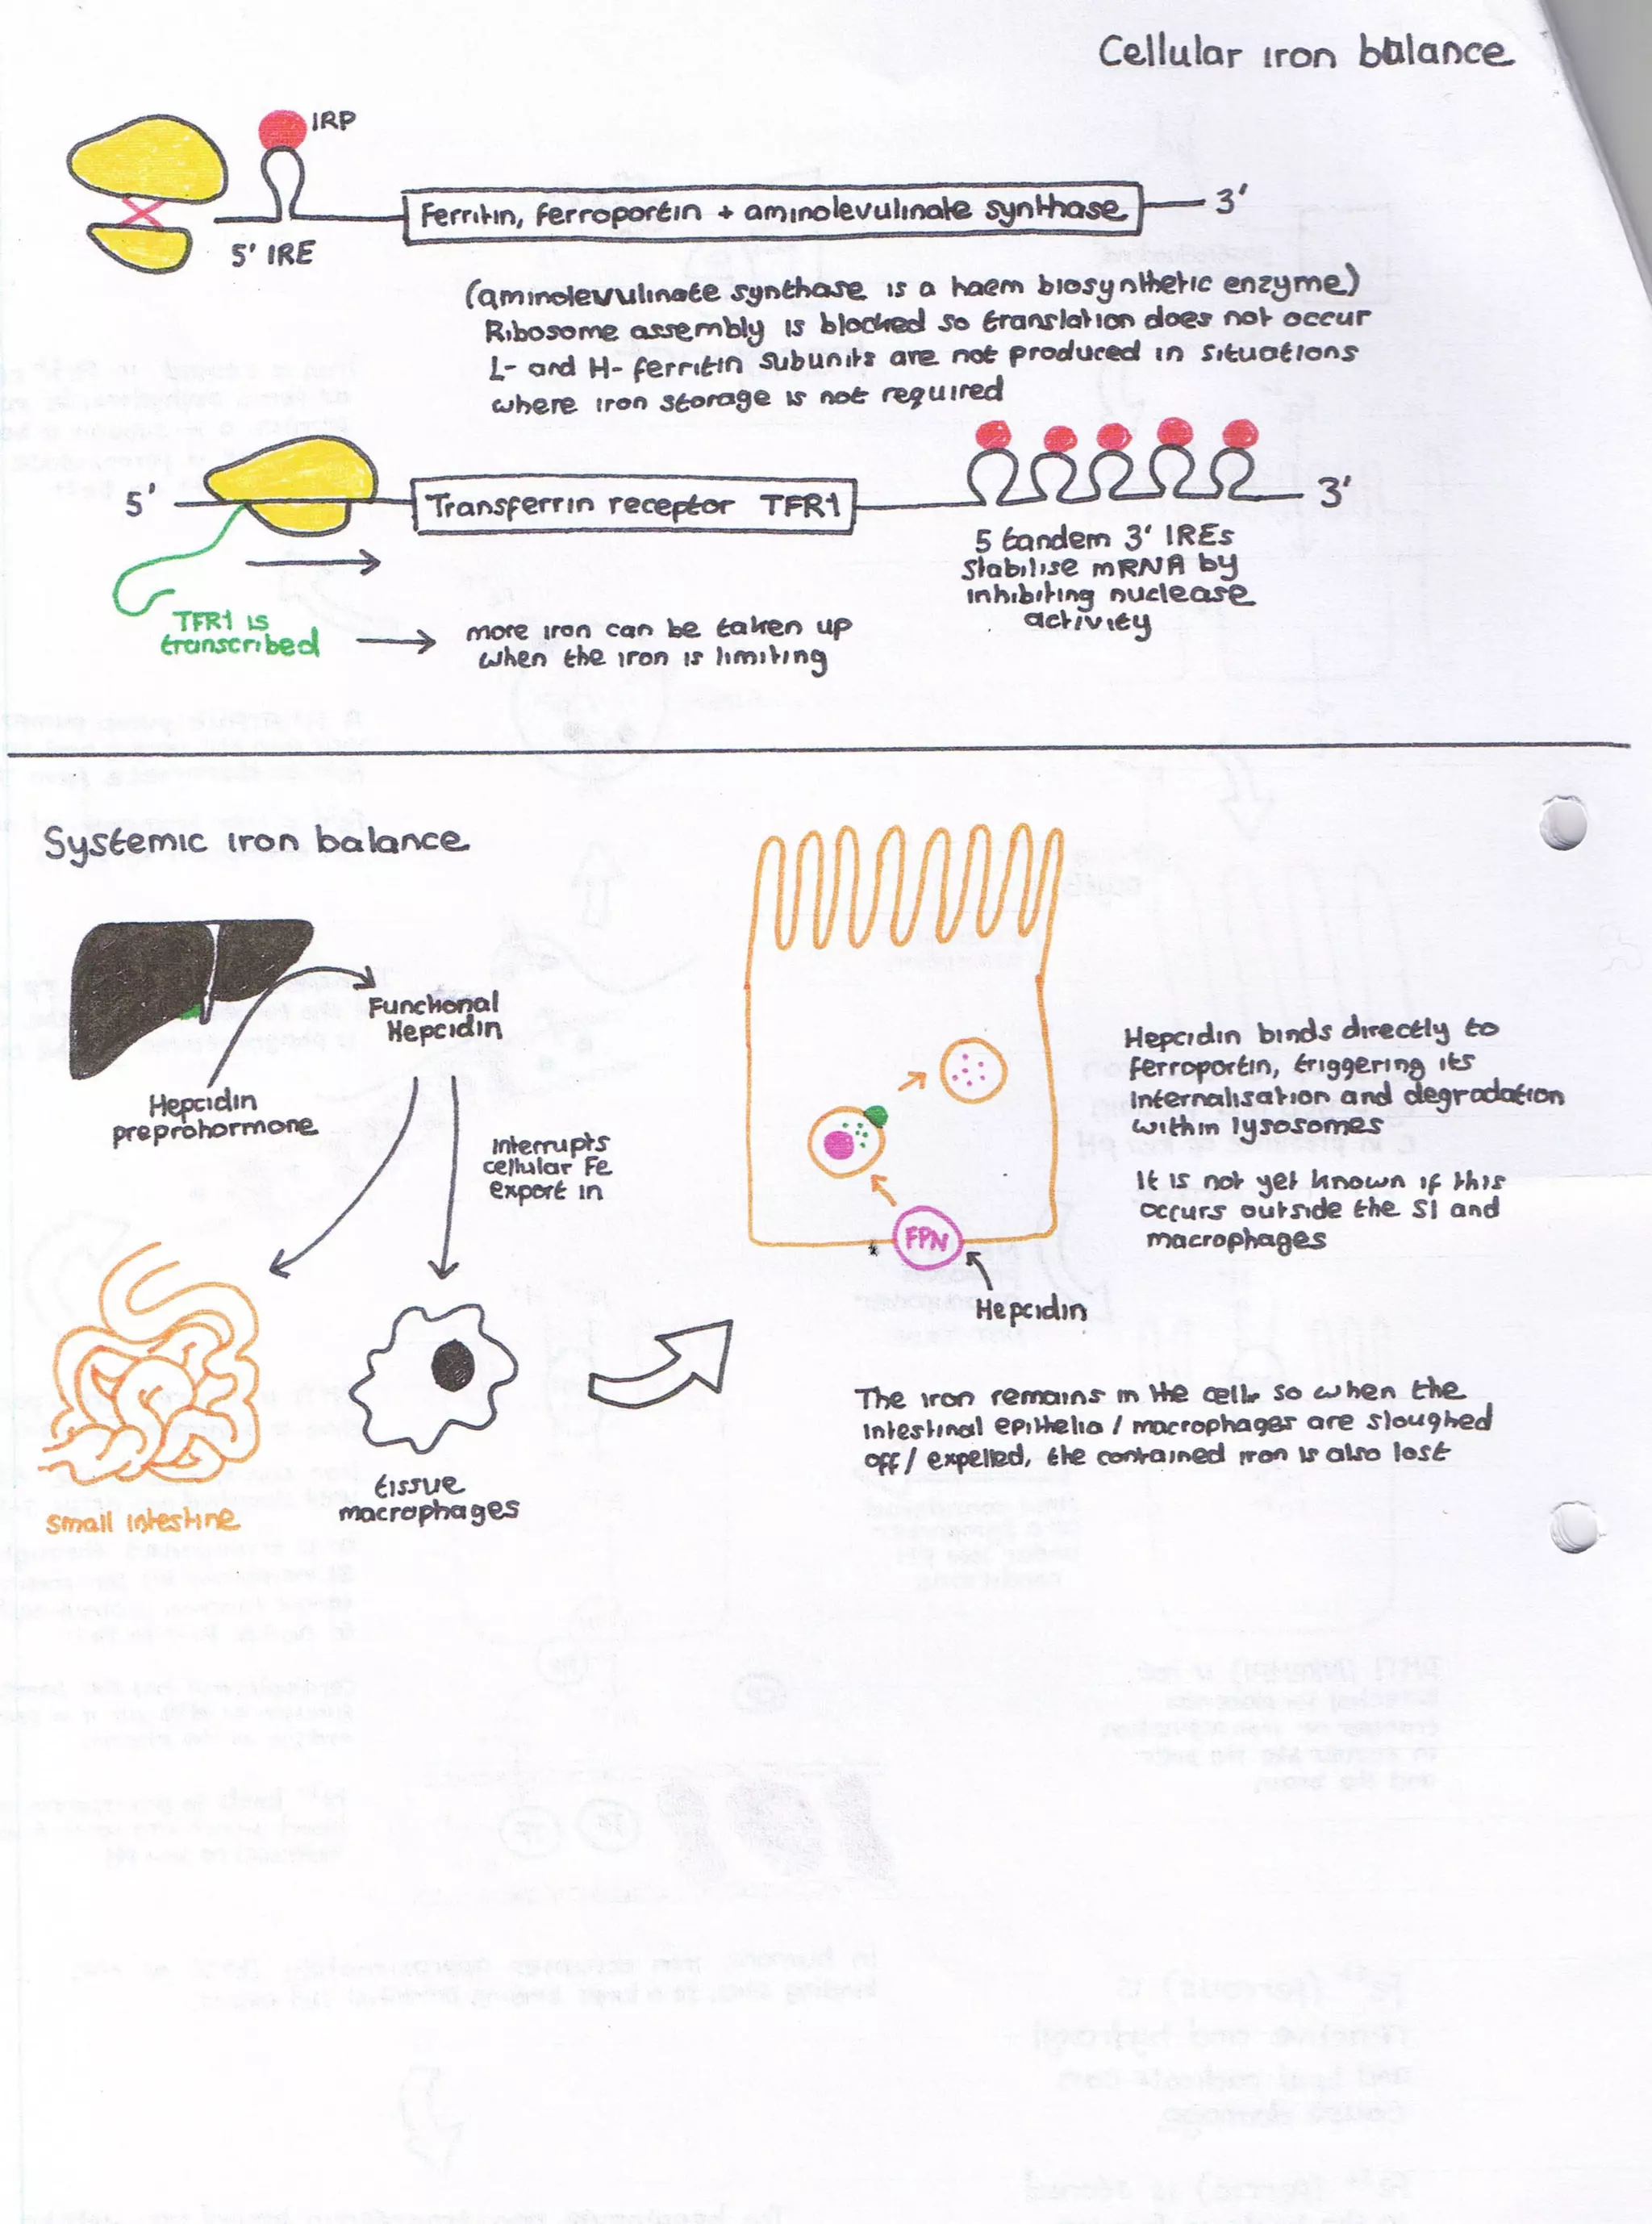 Cellular iron balance
IRP
5' IRE
Ferritin, ferroportin + aminolevulinate synthase
3'
(aminolevulinate synthase is a haem biosynthetic enzyme)
Ribosome assembly is blocked so translation does not occur
L- and H- ferritin subunits are not produced in situations
where iron storage is not required
5'
Transferrin receptor TFR1
3'
5 tandem 3' IREs
stabilise mRNA by
inhibiting nuclease
activity
TFR1 is
transcribed
more iron can be taken up
when the iron is limiting
Systemic iron balance
Functional
Hepcidin
Hepcidin
preprohormone
Interrupts
cellular Fe
export in
small intestine
tissue
macrophages
FPN
Hepcidin
Hepcidin binds directly to
ferroportin, triggering its
internalisation and degradation
within lysosomes
It is not yet known if this
occurs outside the SI and
macrophages
The iron remains in the cells so when the
intestinal epithelia / macrophages are sloughed
off / expelled, the contained iron is also lost